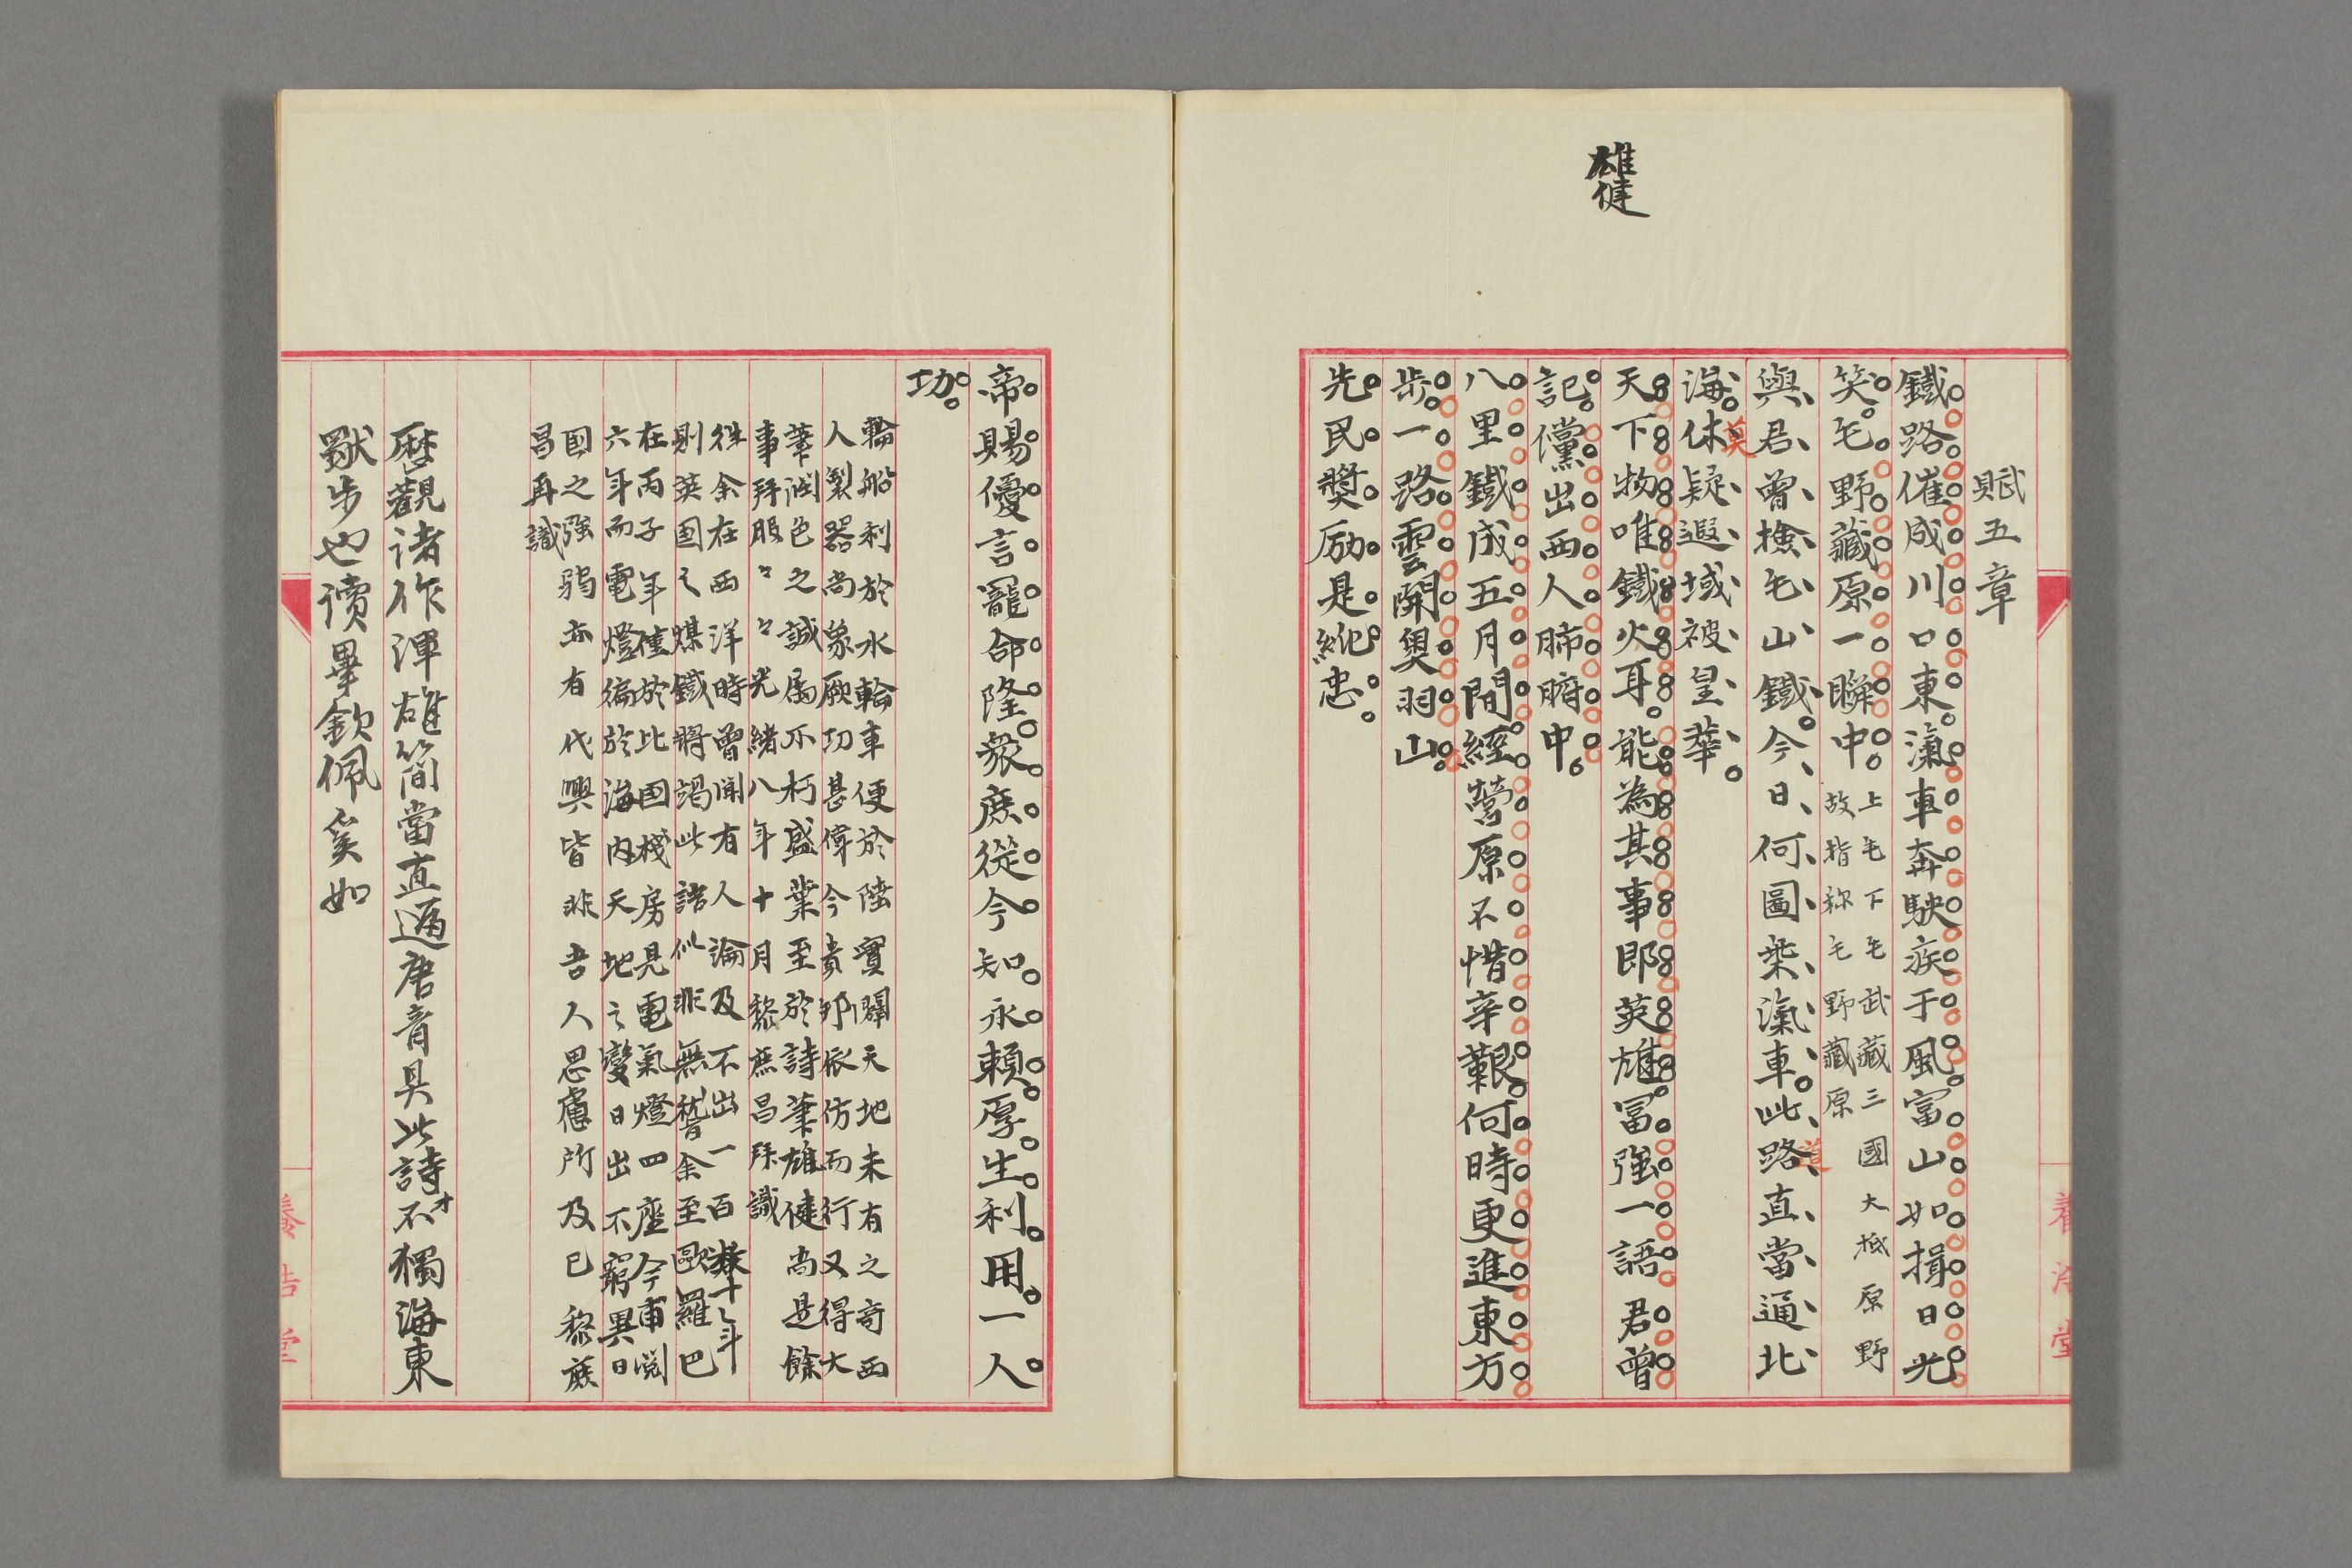 雄健
賦五章
鐵路催成川口東滊車奔駛疾于風富山如揖日光
笑毛野藏原一瞬中
上毛下毛武藏三國大抵原野
故指称毛野藏原
與君曾撿毛山鐵今日何圖椉滊車此路直當通北
道
海休疑遐域被皇華
莫
天下物唯鐵火耳能為其事即英雄冨強一語君曾
記儻出西人肺腑中
八里鐵成五月間經營原不惜辛艱何時更進東方
步一路雲開奧羽山
先民奬励是純忠
帝賜優言寵命隆衆庶從今知永頼厚生利用一人
功
輪船利於水輪車便於陸實闢天地未有之奇西
人製器尚象厥功甚偉今貴邦依仿而行又得大
筆潤色之誠為不朽盛業至於詩筆雄健尚是餘
事拜服々々光緒八年十月黎庶昌拜識
往余在西洋時曾聞有人論及不出一百數十年
則英國之煤鐵將竭此語似非無稽余至歐羅巴
在丙子年僅於比國棧房見電氣燈四座今甫閲
六年而電燈徧於海內天地之變日出不窮異日
國之強弱亦有代興皆非吾人思慮所及已 黎庶
昌再識
歴觀諸作渾雄簡當直逼唐音具此詩才不獨海東
獣步也讀畢欽佩奚如
養浩堂
養浩堂